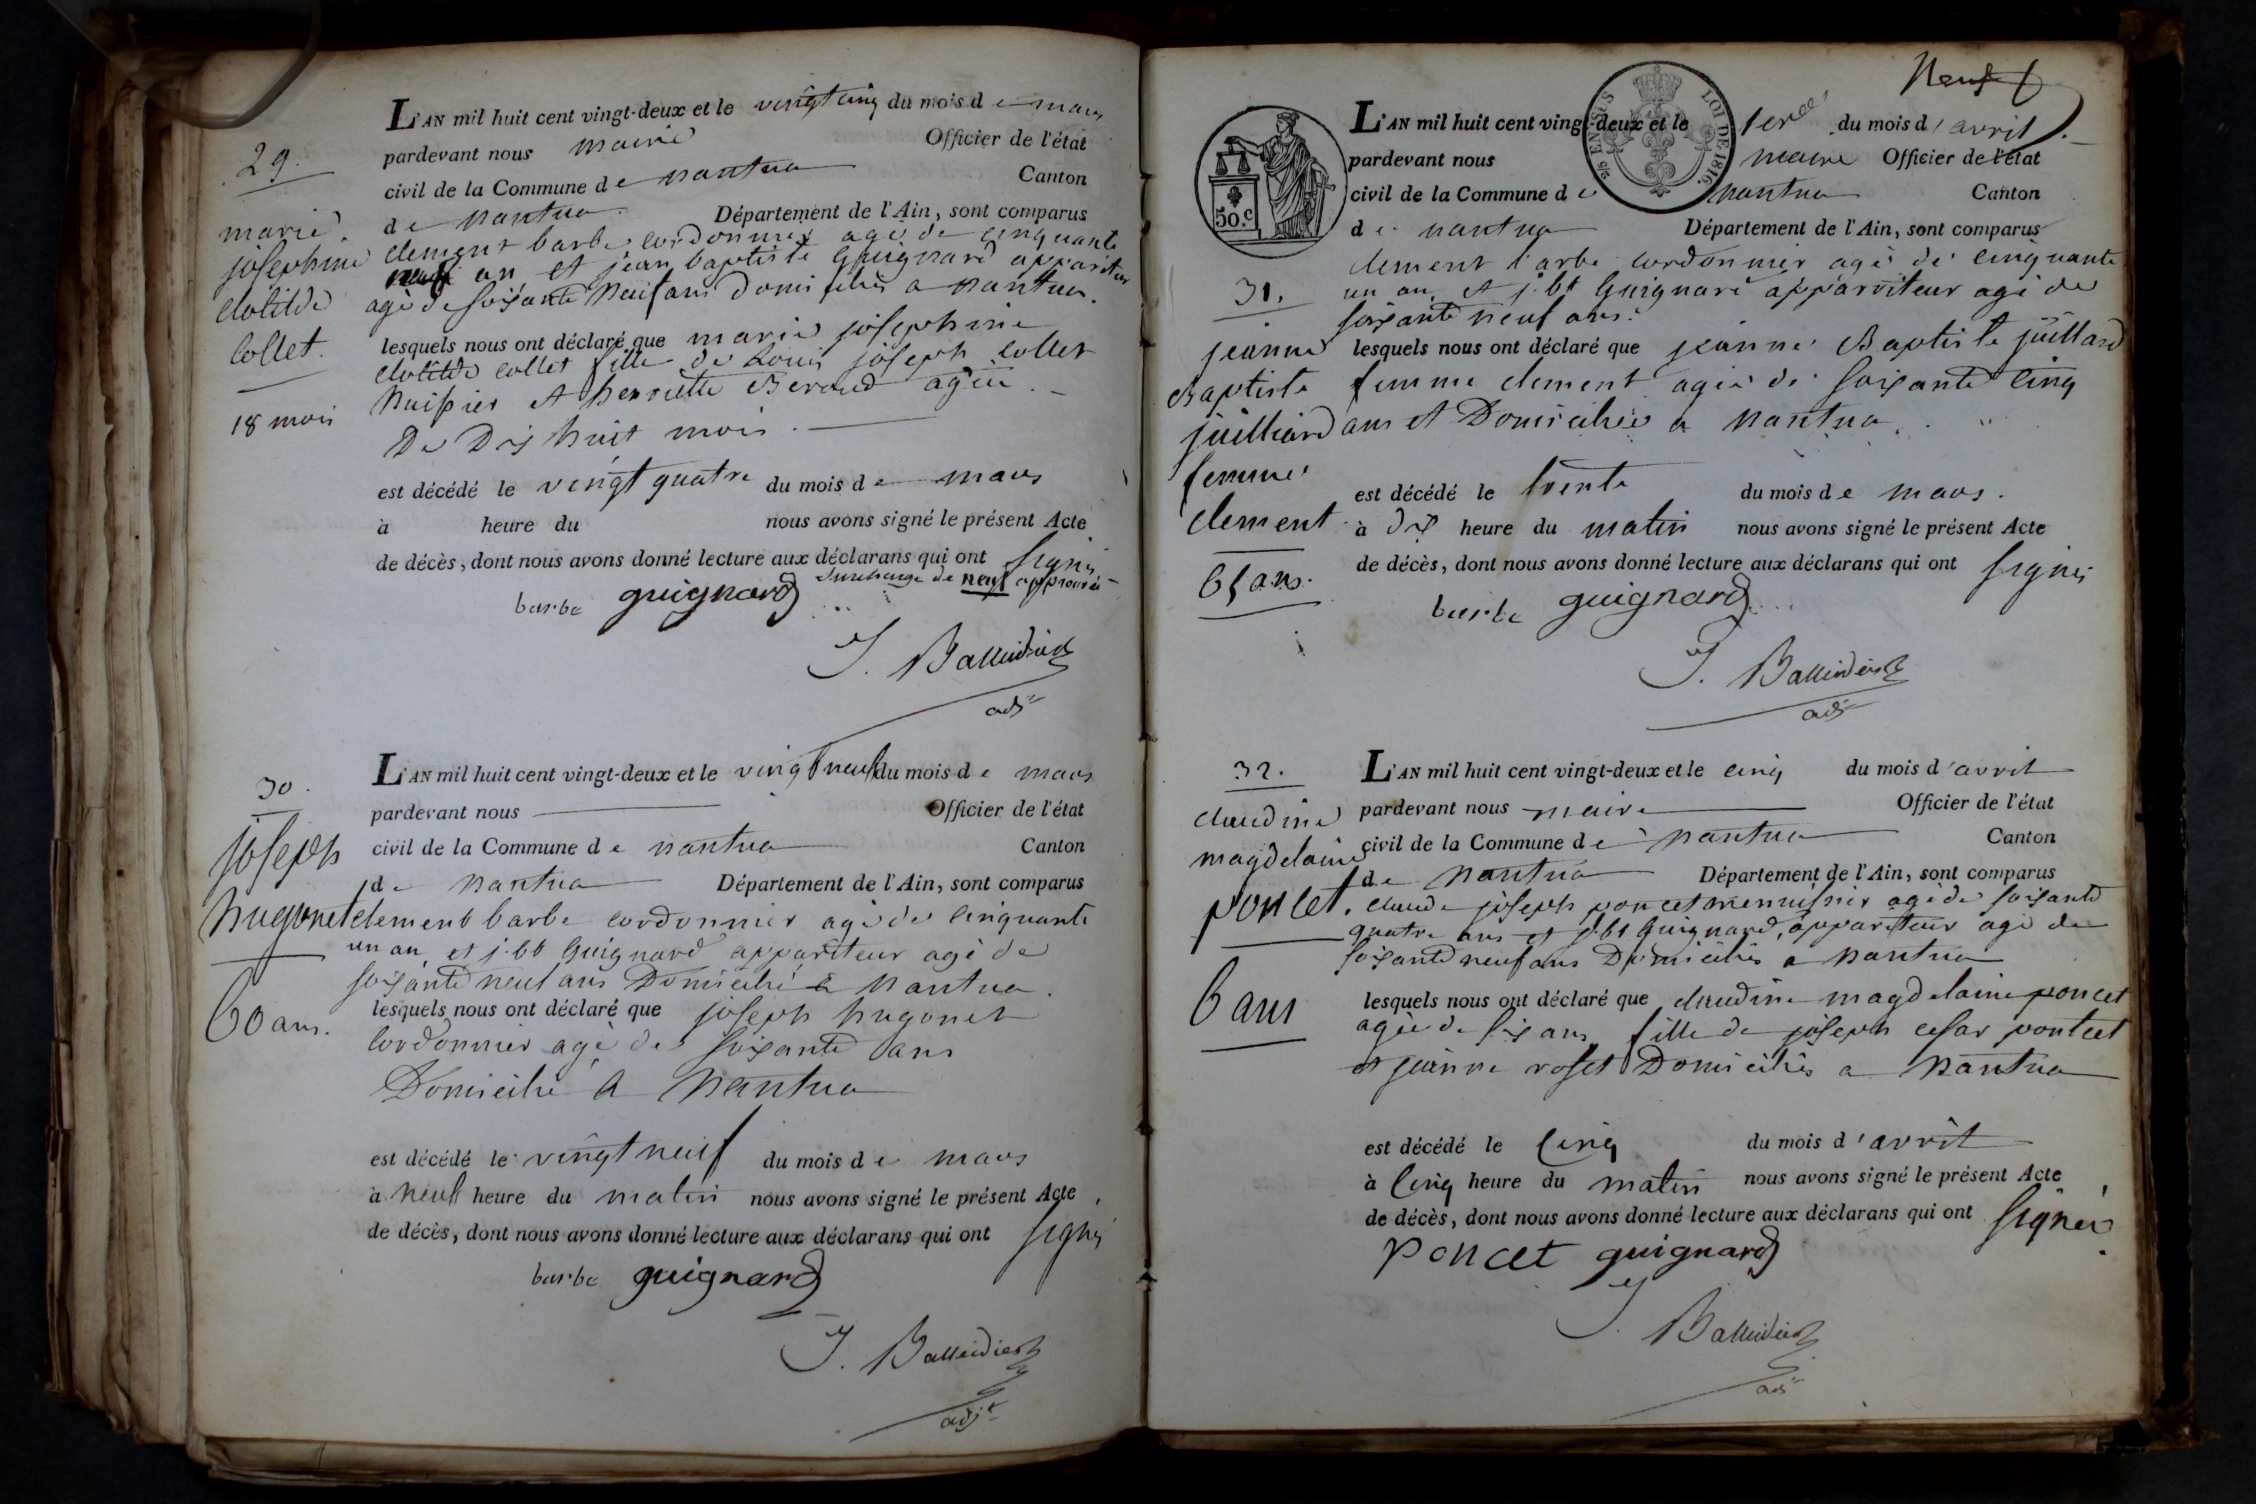 29.
marie
josephine
clotilde
Collet.
18 mois
L'AN mil huit cent vingt-deux et le vingt cinq du mois de mars
pardevant nous maire Officier de l'état
civil de la Commune de nantua Canton
de nantua Département de l'Ain, sont comparus
clement barbe cordonnier agé de cinquante
an et jean baptiste Guignard appariteur
agé de soixante neuf ans domiciliés a nantua.
lesquels nous ont déclaré que marie josephine
clotilde collet fille de Louis joseph collet
huissier et henriette Beroud agée
De Dix huit mois.
est décédé le vingt quatre du mois de mars
à heure du nous avons signé le présent Acte
de décès, dont nous avons donné lecture aux déclarans qui ont signés
surcharge de neuf approuvée
barbe guignard
J. Balleidier
adj
30.
joseph
hugonet
60 ans.
L'AN mil huit cent vingt-deux et le vingt neuf du mois de mars
pardevant nous Officier de l'état
civil de la Commune de nantua Canton
de nantua Département de l'Ain, sont comparus
clement barbe cordonnier agé de cinquante
un an et j. bt Guignard appariteur agé de
soixante neuf ans Domicilié a nantua.
lesquels nous ont déclaré que joseph hugonet
Cordonnier agé de soixante ans
Domicilié a Nantua
est décédé le vingt neuf du mois de mars
à neuf heure du matin nous avons signé le présent Acte
de décès, dont nous avons donné lecture aux déclarans qui ont signés
barbe guignard
J. Balleidier
adjt
Neuf
50.c
LOI DE 1816.
31.
jeanne
Baptiste
juilliard
femme
clement
65 ans.
L'AN mil huit cent vingt-deux et le 1er du mois d'avril
pardevant nous maire Officier de l'état
civil de la Commune de nantua Canton
de nantua Département de l'Ain, sont comparus
clement barbe cordonnier agé de cinquante
un an et j. bt Guignard appariteur agé de
soixante neuf ans.
lesquels nous ont déclaré que jeanne Baptiste juillard
femme clement agée de soixante cinq
ans et Domiciliée a nantua.
est décédé le trente du mois de mars.
à dix heure du matin nous avons signé le présent Acte
de décès, dont nous avons donné lecture aux déclarans qui ont signés
barbe guignard
J. Balleidier
adj
32.
claudine
magdelaine
poncet.
6 ans
L'AN mil huit cent vingt-deux et le cinq du mois d'avril
pardevant nous maire Officier de l'état
civil de la Commune de nantua Canton
de nantua Département de l'Ain, sont comparus
claude joseph poncet menuisier agé de soixante
quatre ans et j. bt Guignard, appariteur agé de
soixante neuf ans Domiciliés a nantua
lesquels nous ont déclaré que claudine magdelaine poncet
agée de six ans fille de joseph cesar pontcet
et jeanne roset Domiciliés a nantua
est décédé le cinq du mois d'avril
à cinq heure du matin nous avons signé le présent Acte
de décès, dont nous avons donné lecture aux déclarans qui ont signés
poncet guignard
J. Balleidier
adj